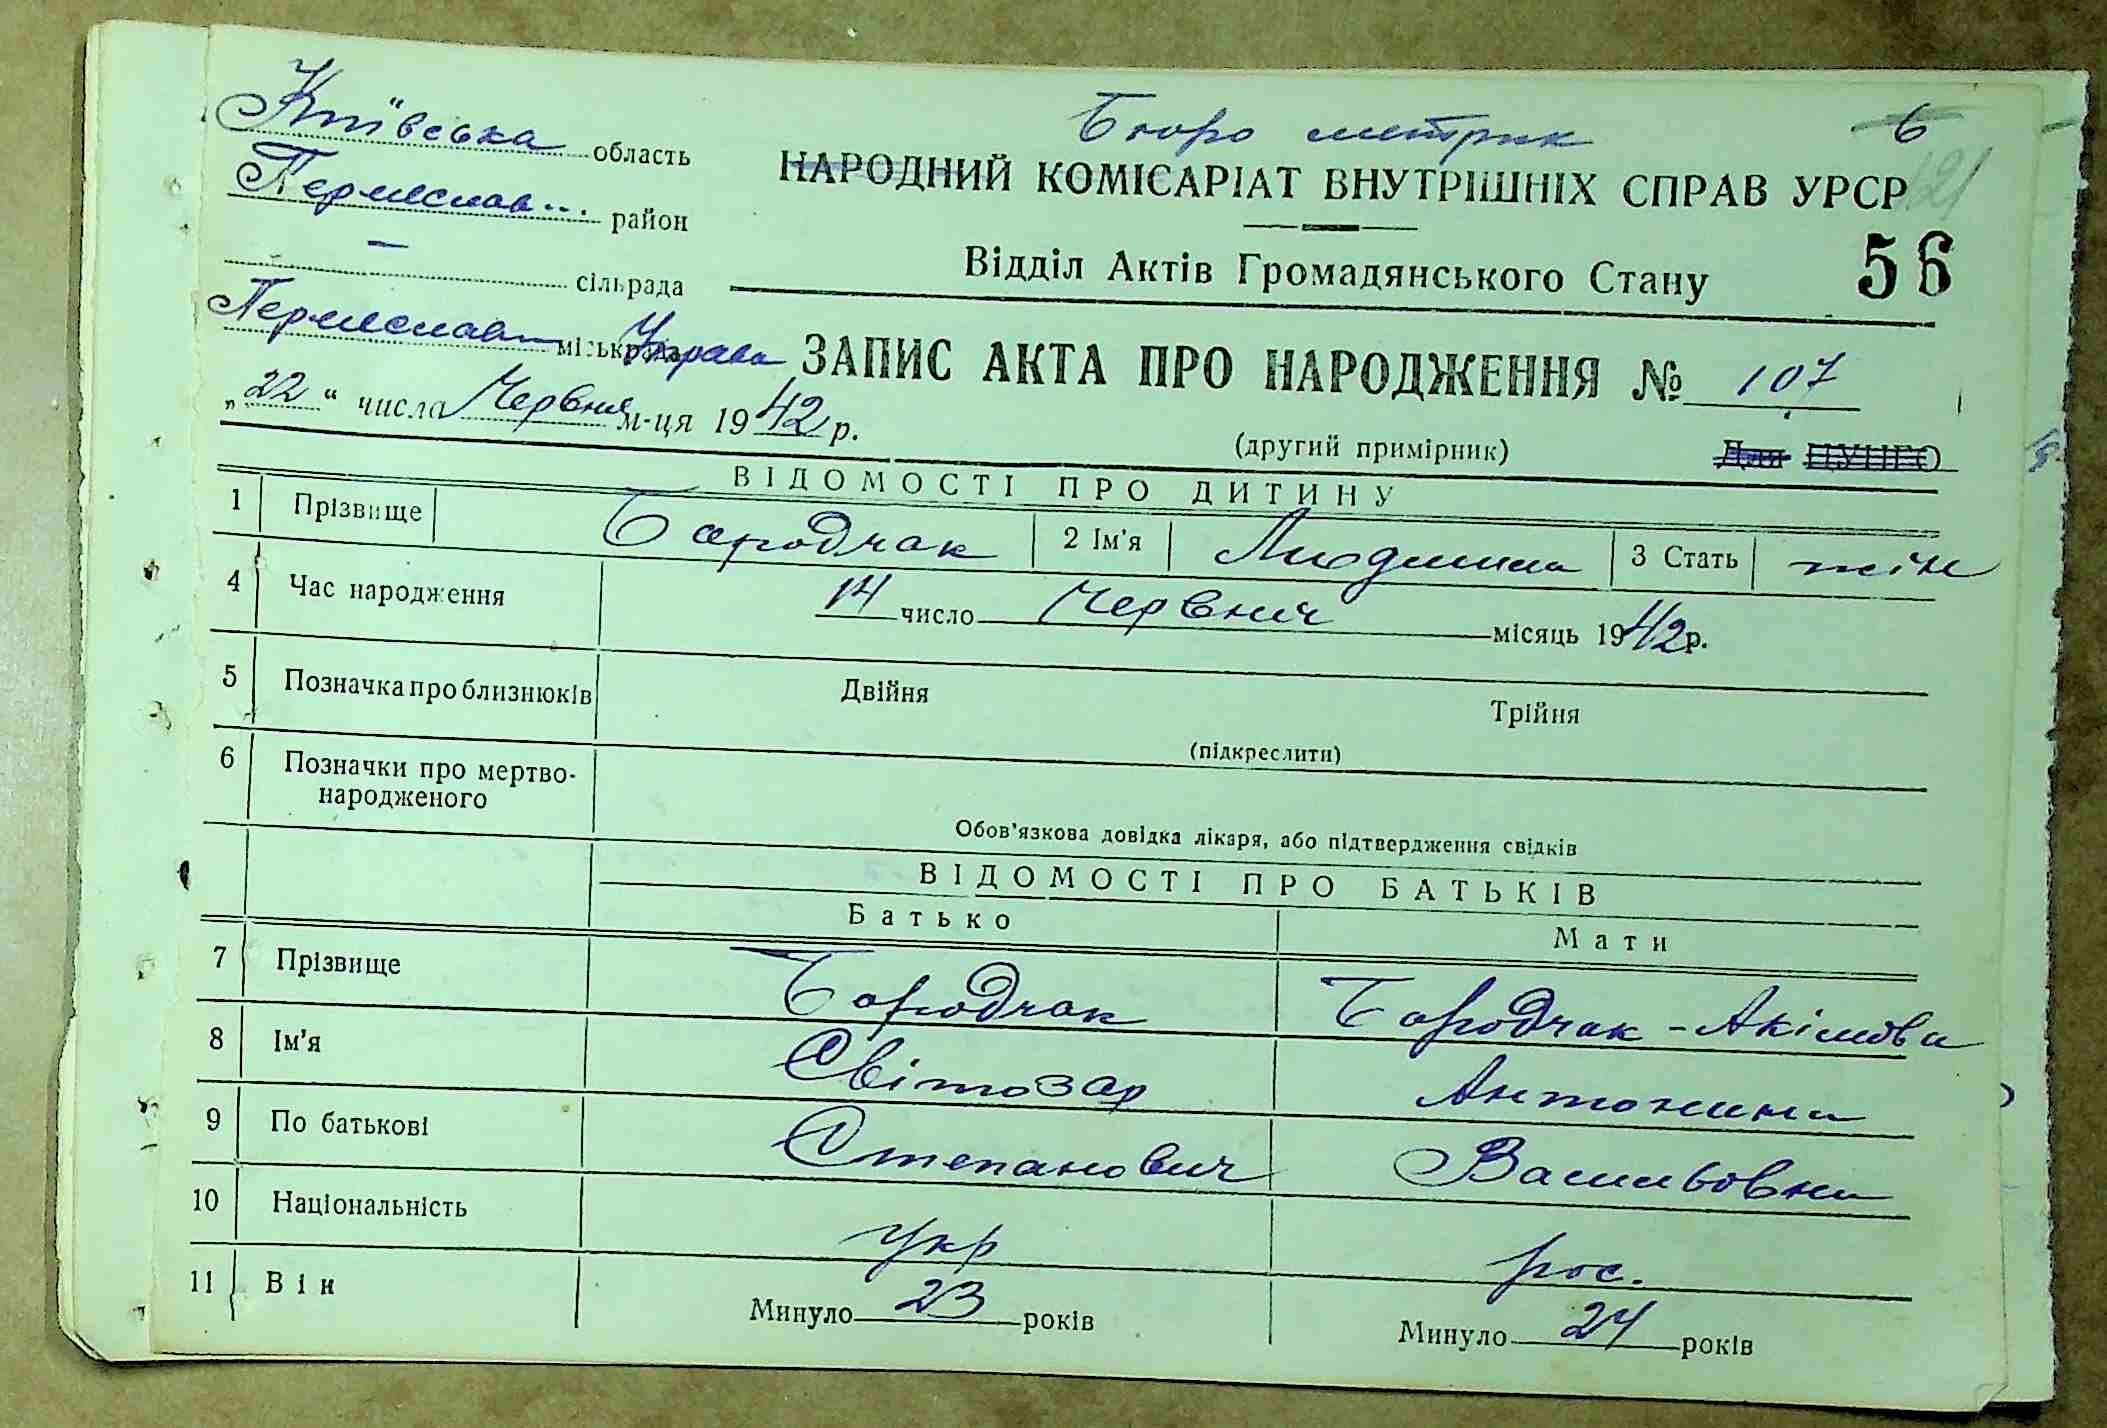 Київська область
Переяслав... район
— сільрада
Переяслав міськрада Управа
„22" числа Червня м-ця 1942 р.
Бюро метрик 6
НАРОДНИЙ КОМІСАРІАТ ВНУТРІШНІХ СПРАВ УРСР 121
Відділ Актів Громадянського Стану 56
ЗАПИС АКТА ПРО НАРОДЖЕННЯ № 107
(другий примірник) Для ЦУНГО
ВІДОМОСТІ ПРО ДИТИНУ
1 Прізвище Бародчак 2 Ім'я Людмила 3 Стать жін
4 Час народження 14 число Червня місяць 1942 р.
5 Позначка про близнюків Двійня Трійня
(підкреслити)
6 Позначки про мертво-
народженого
Обов'язкова довідка лікаря, або підтвердження свідків
ВІДОМОСТІ ПРО БАТЬКІВ
Батько Мати
7 Прізвище Бародчак Бародчак-Акімова
8 Ім'я Світозар Антонина
9 По батькові Степанович Васильовна
10 Національність укр рос.
11 Вік Минуло 23 років Минуло 24 років